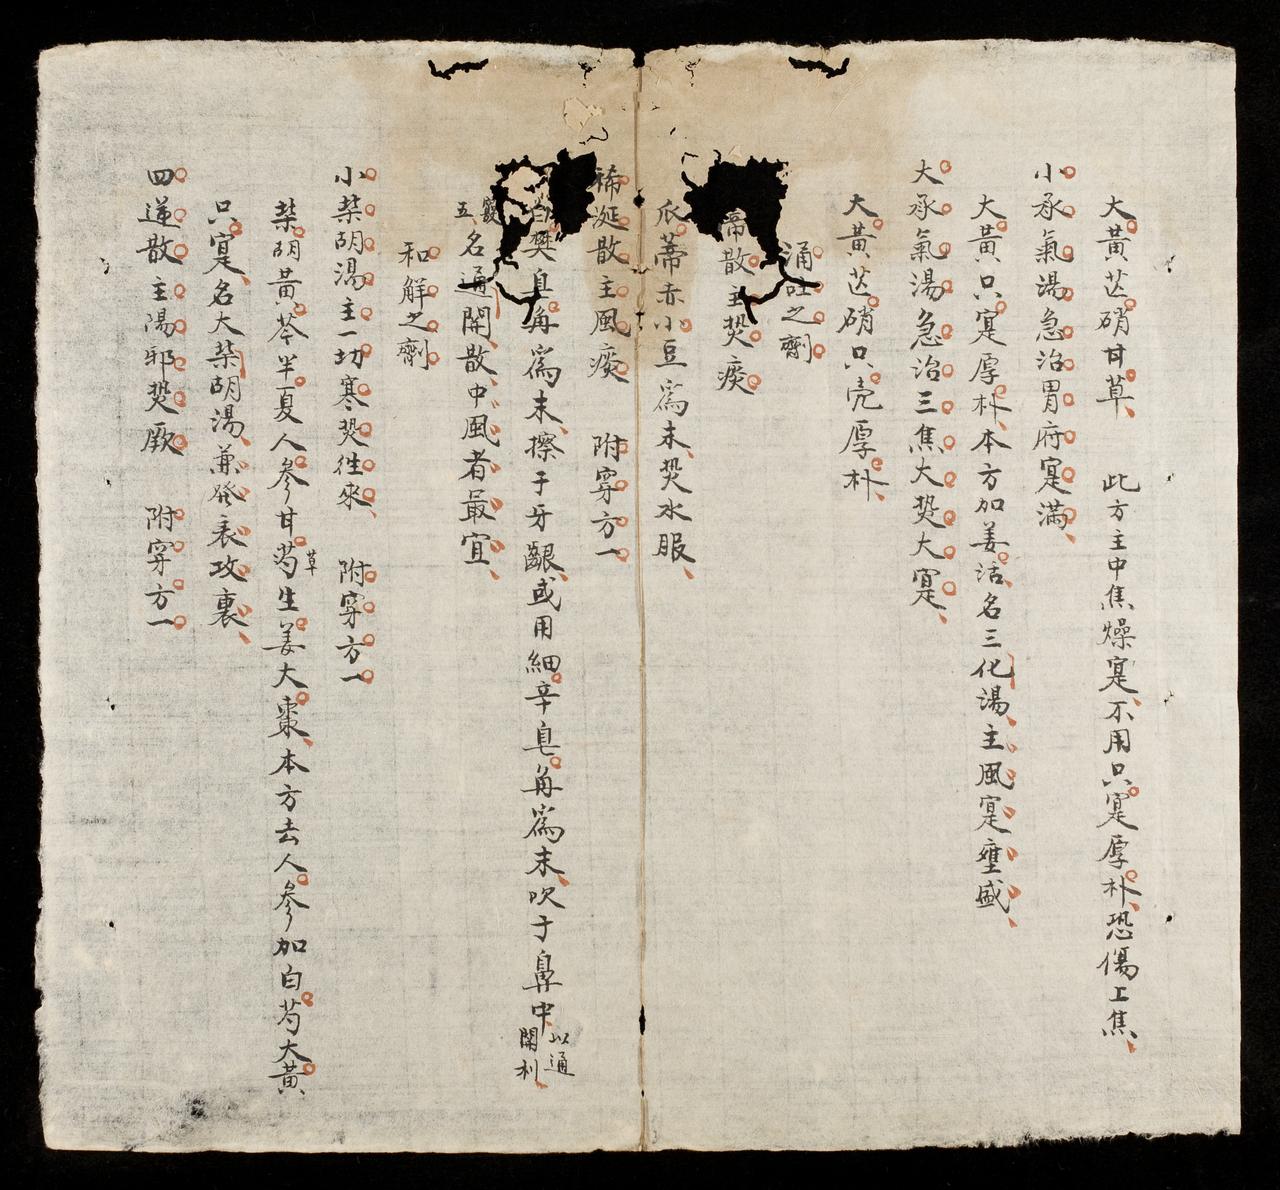 大黃芒硝甘草　此方主中焦燥寔不用只寔厚朴恐傷上焦
小承氣湯急治胃府寔滿
大黃只寔厚朴本方加姜活名三化湯主風寔壅盛
大承氣湯急治三焦大热大寔
大黃芒硝只壳厚朴
涌吐之劑
蒂散主热痰
瓜蒂赤小豆爲末热水服
稀涎散主風痰　附穿方一
白礬皂角爲末擦于牙齦或用細辛皂角爲末吹于鼻中以通開利
五竅名通開散中風者最宜
和解之劑
小柴胡湯主一切寒热徃來　附穿方一
柴胡黃芩半夏人參甘芍草生姜大棗本方去人參加白芍大黃
只寔名大柴胡湯兼發表攻裏
四逆散主陽邪热厥　附穿方一